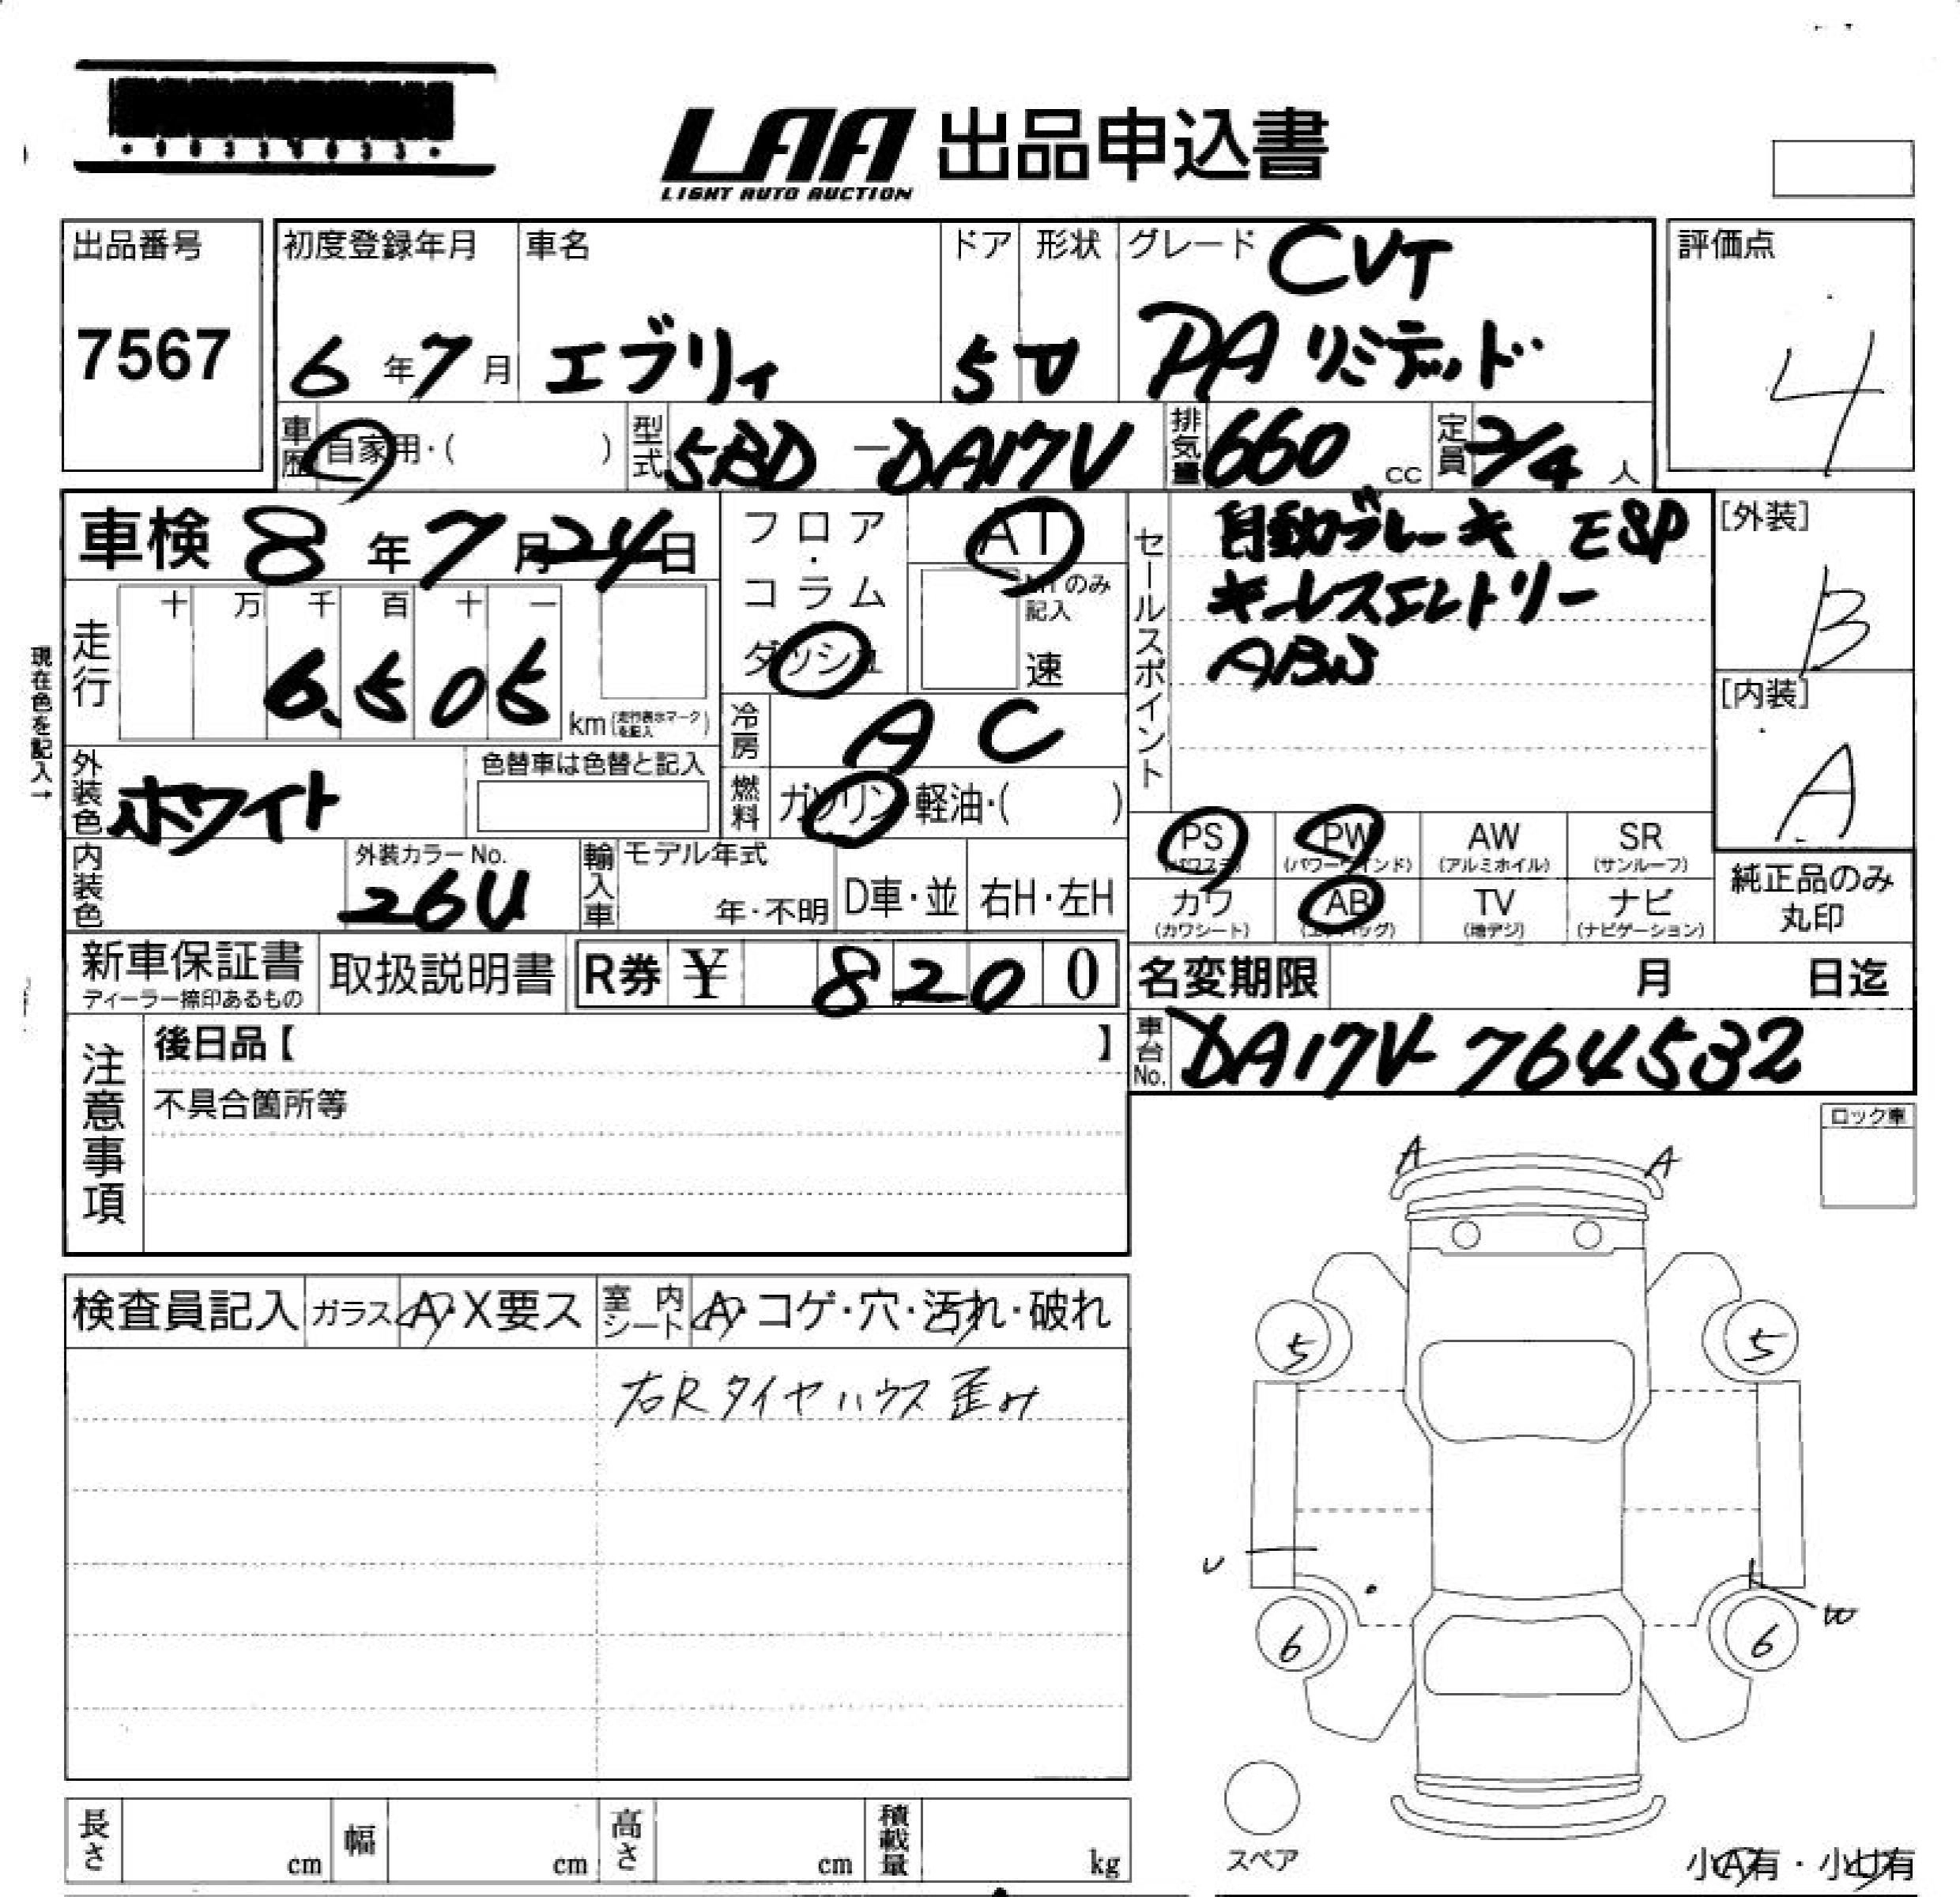 LAA 出品申込書
LIGHT AUTO AUCTION
出品番号
7567
初度登録年月
6年7月
車名
エブリィ
ドア
5
形状
V
グレード CVT
PAリミテッド
評価点
4
車歴 自家用・( )
型式 5BD-DA17V
排気量 660cc
定員 2/4人
車検 8年7月24日
フロア・コラム
ダッシュ
AT
MTのみ記入
速
セールスポイント
自動ブレーキ ESP
キーレスエントリー
ABS
[外装]
B
[内装]
A
現在色を記入→
走行
十 万 千 百 十 一
6,505
km (走行表示マークを記入)
冷房 AC
燃料 ガソリン・軽油・( )
外装色 ホワイト
色替車は色替と記入
内装色
外装カラーNo.
26U
輸入車
モデル年式
年・不明
D車・並
右H・左H
PS (パワステ)
PW (パワーウインド)
AW (アルミホイル)
SR (サンルーフ)
カワ (カワシート)
AB (エアバッグ)
TV (地デジ)
ナビ (ナビゲーション)
純正品のみ
丸印
新車保証書
ディーラー捺印あるもの
取扱説明書
R券 ¥ 8200
名変期限 月 日迄
車台No. DA17V-764532
注意事項
後日品【 】
不具合箇所等
ロック車
検査員記入
ガラス A・X要ス
室内シート A・コゲ・穴・汚れ・破れ
右Rタイヤハウス歪み
A A
5 5
U
W
6 6
スペア
小A有・小U有
長さ cm
幅 cm
高さ cm
積載量 kg